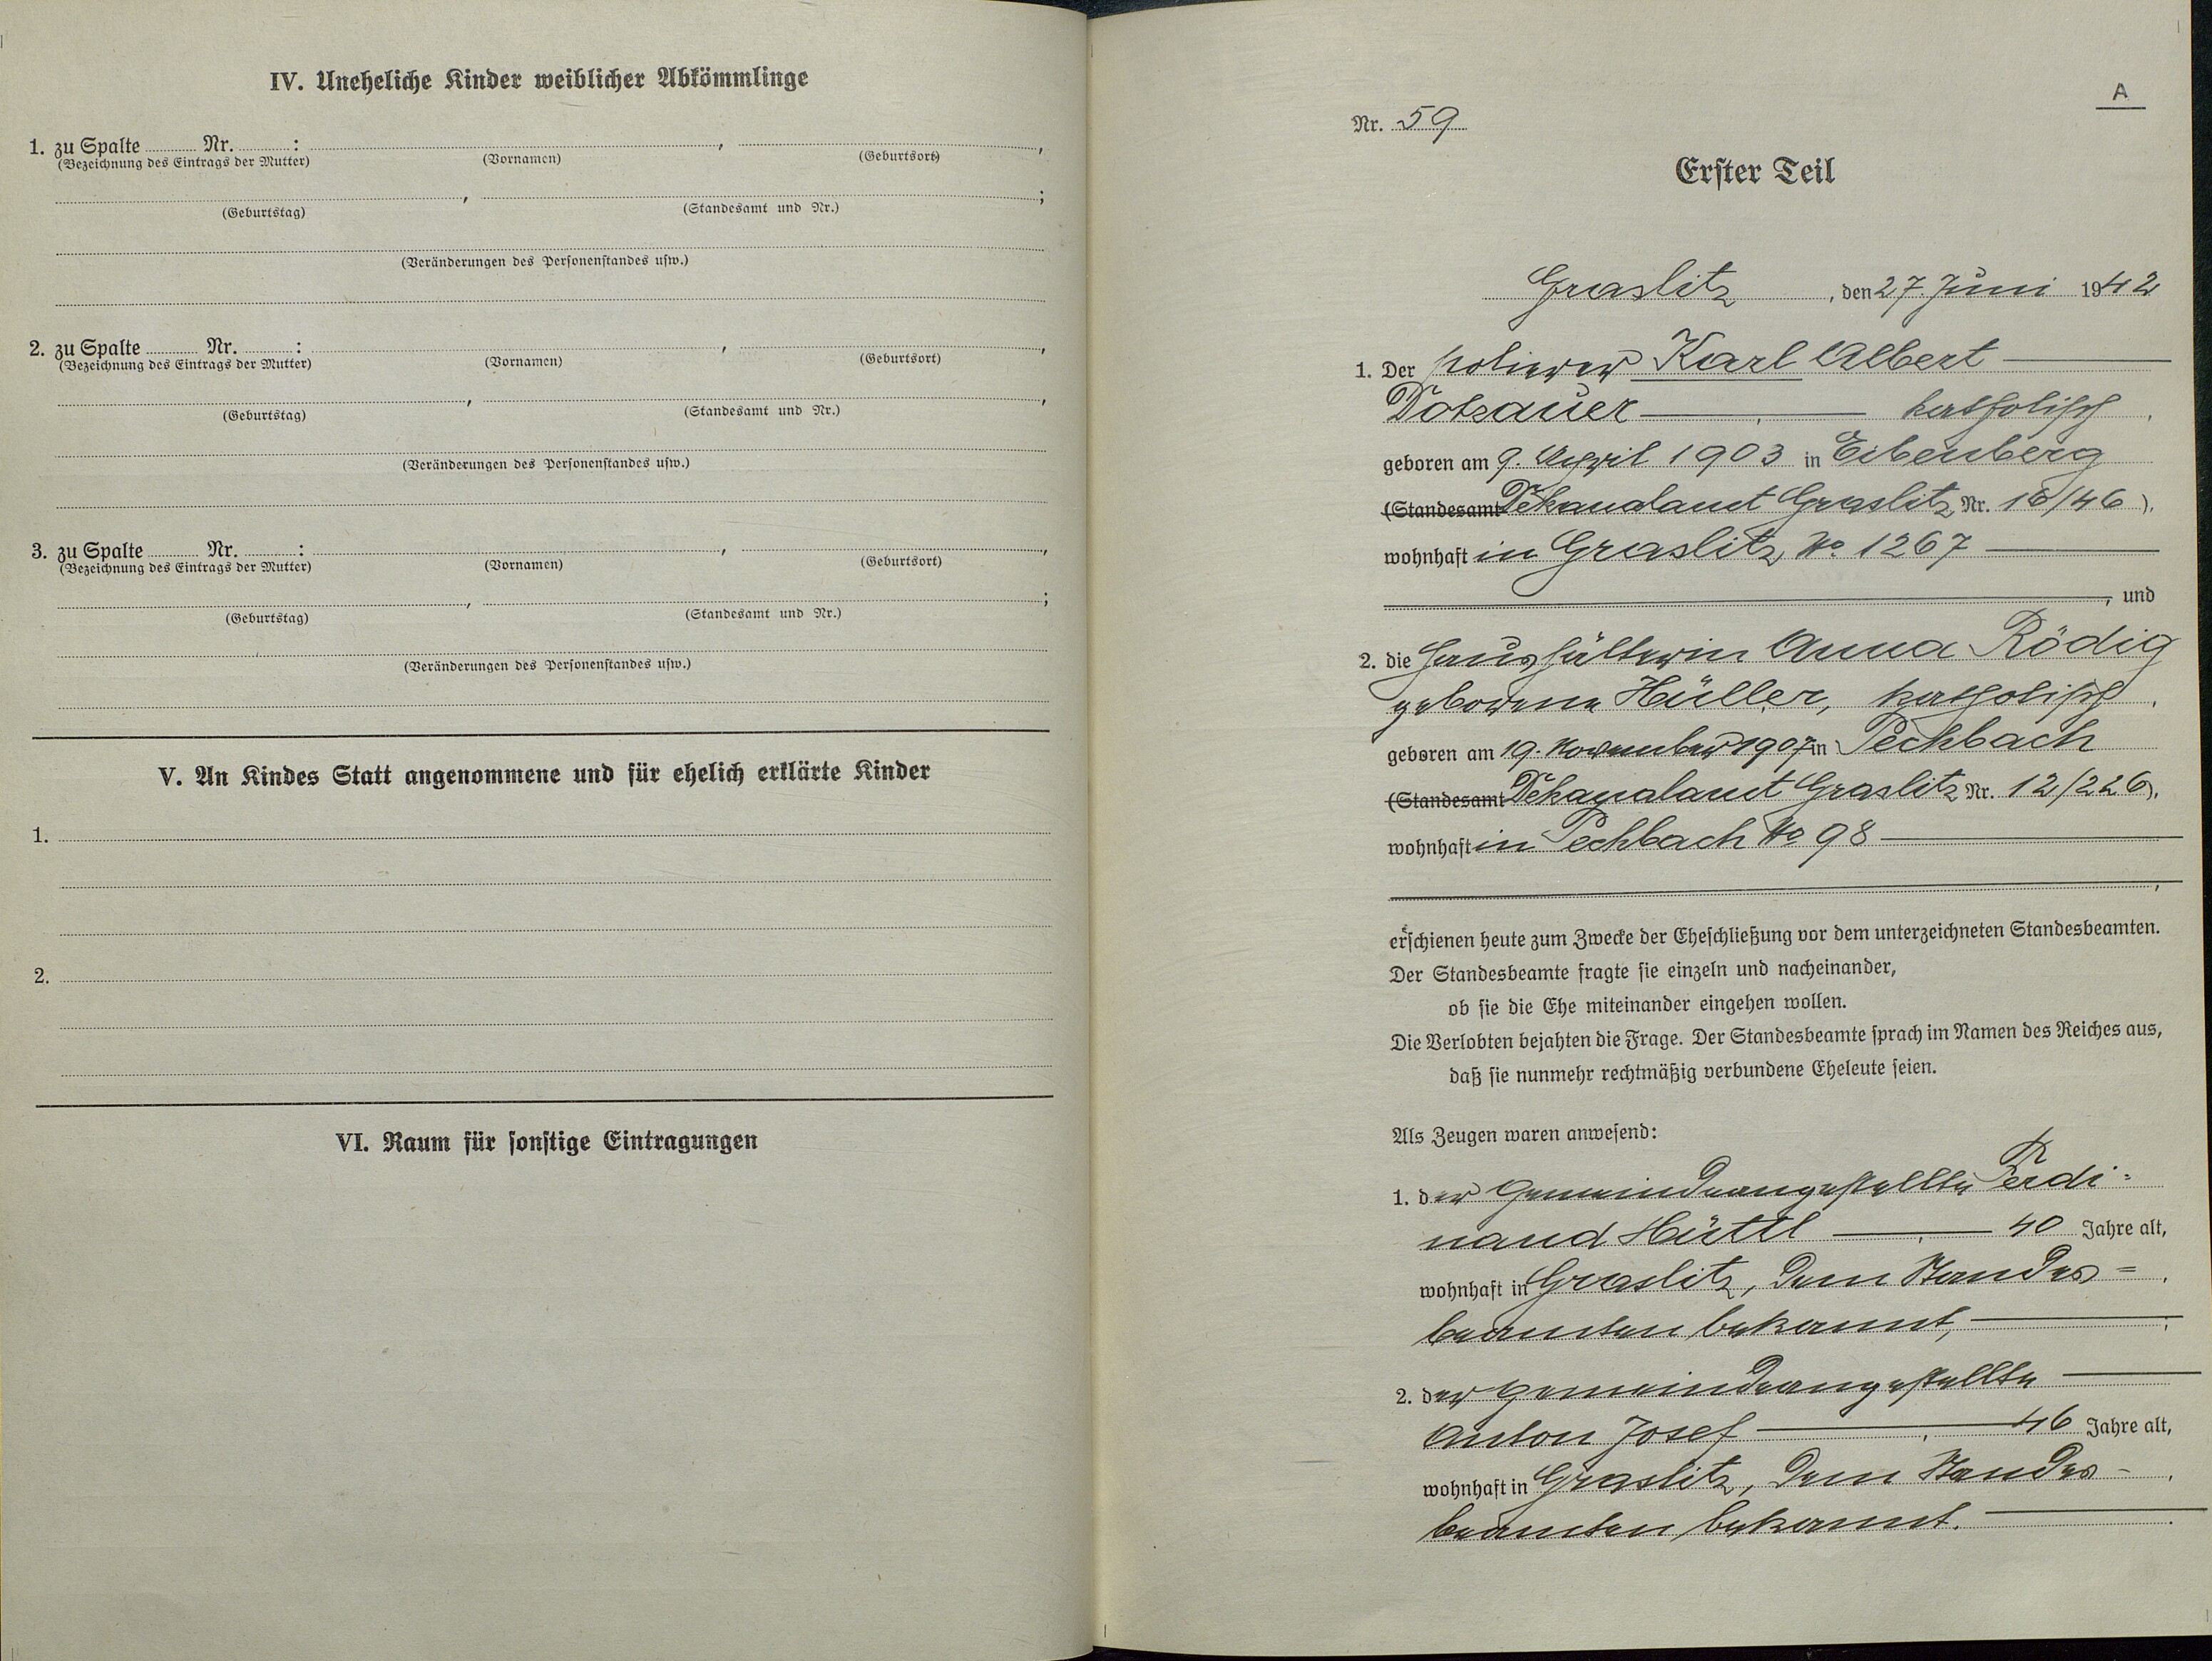 IV. Uneheliche Kinder weiblicher Abkömmlinge
1. zu Spalte Nr. : , ,
(Bezeichnung des Eintrags der Mutter) (Vornamen) (Geburtsort)
, ;
(Geburtstag) (Standesamt und Nr.)
(Veränderungen des Personenstandes usw.)
2. zu Spalte Nr. : , ,
(Bezeichnung des Eintrags der Mutter) (Vornamen) (Geburtsort)
, ,
(Geburtstag) (Standesamt und Nr.)
(Veränderungen des Personenstandes usw.)
3. zu Spalte Nr. : , ,
(Bezeichnung des Eintrags der Mutter) (Vornamen) (Geburtsort)
, ;
(Geburtstag) (Standesamt und Nr.)
(Veränderungen des Personenstandes usw.)
V. An Kindes Statt angenommene und für ehelich erklärte Kinder
1.
2.
VI. Raum für sonstige Eintragungen
A
Nr. 59
Erster Teil
Graslitz, den 27. Juni 1942
1. Der Polierer Karl Albert
Dotzauer, katholisch,
geboren am 9. April 1903 in Eibenberg
(Standesamt Dekanalamt Graslitz Nr. 16/46),
wohnhaft in Graslitz No 1267
, und
2. die Haushälterin Anna Rödig
geborene Hüller, katholisch,
geboren am 19. November 1907 in Pechbach
(Standesamt Dekanalamt Graslitz Nr. 12/226),
wohnhaft in Pechbach No 98
,
erschienen heute zum Zwecke der Eheschließung vor dem unterzeichneten Standesbeamten.
Der Standesbeamte fragte sie einzeln und nacheinander,
ob sie die Ehe miteinander eingehen wollen.
Die Verlobten bejahten die Frage. Der Standesbeamte sprach im Namen des Reiches aus,
daß sie nunmehr rechtmäßig verbundene Eheleute seien.
Als Zeugen waren anwesend:
1. der Gemeindeangestellte Ferdi=
nand Hüttl, 40 Jahre alt,
wohnhaft in Graslitz, dem Standes=,
beamten bekannt,;
2. der Gemeindeangestellte
Anton Josef, 46 Jahre alt,
wohnhaft in Graslitz, dem Standes-,
beamten bekannt.